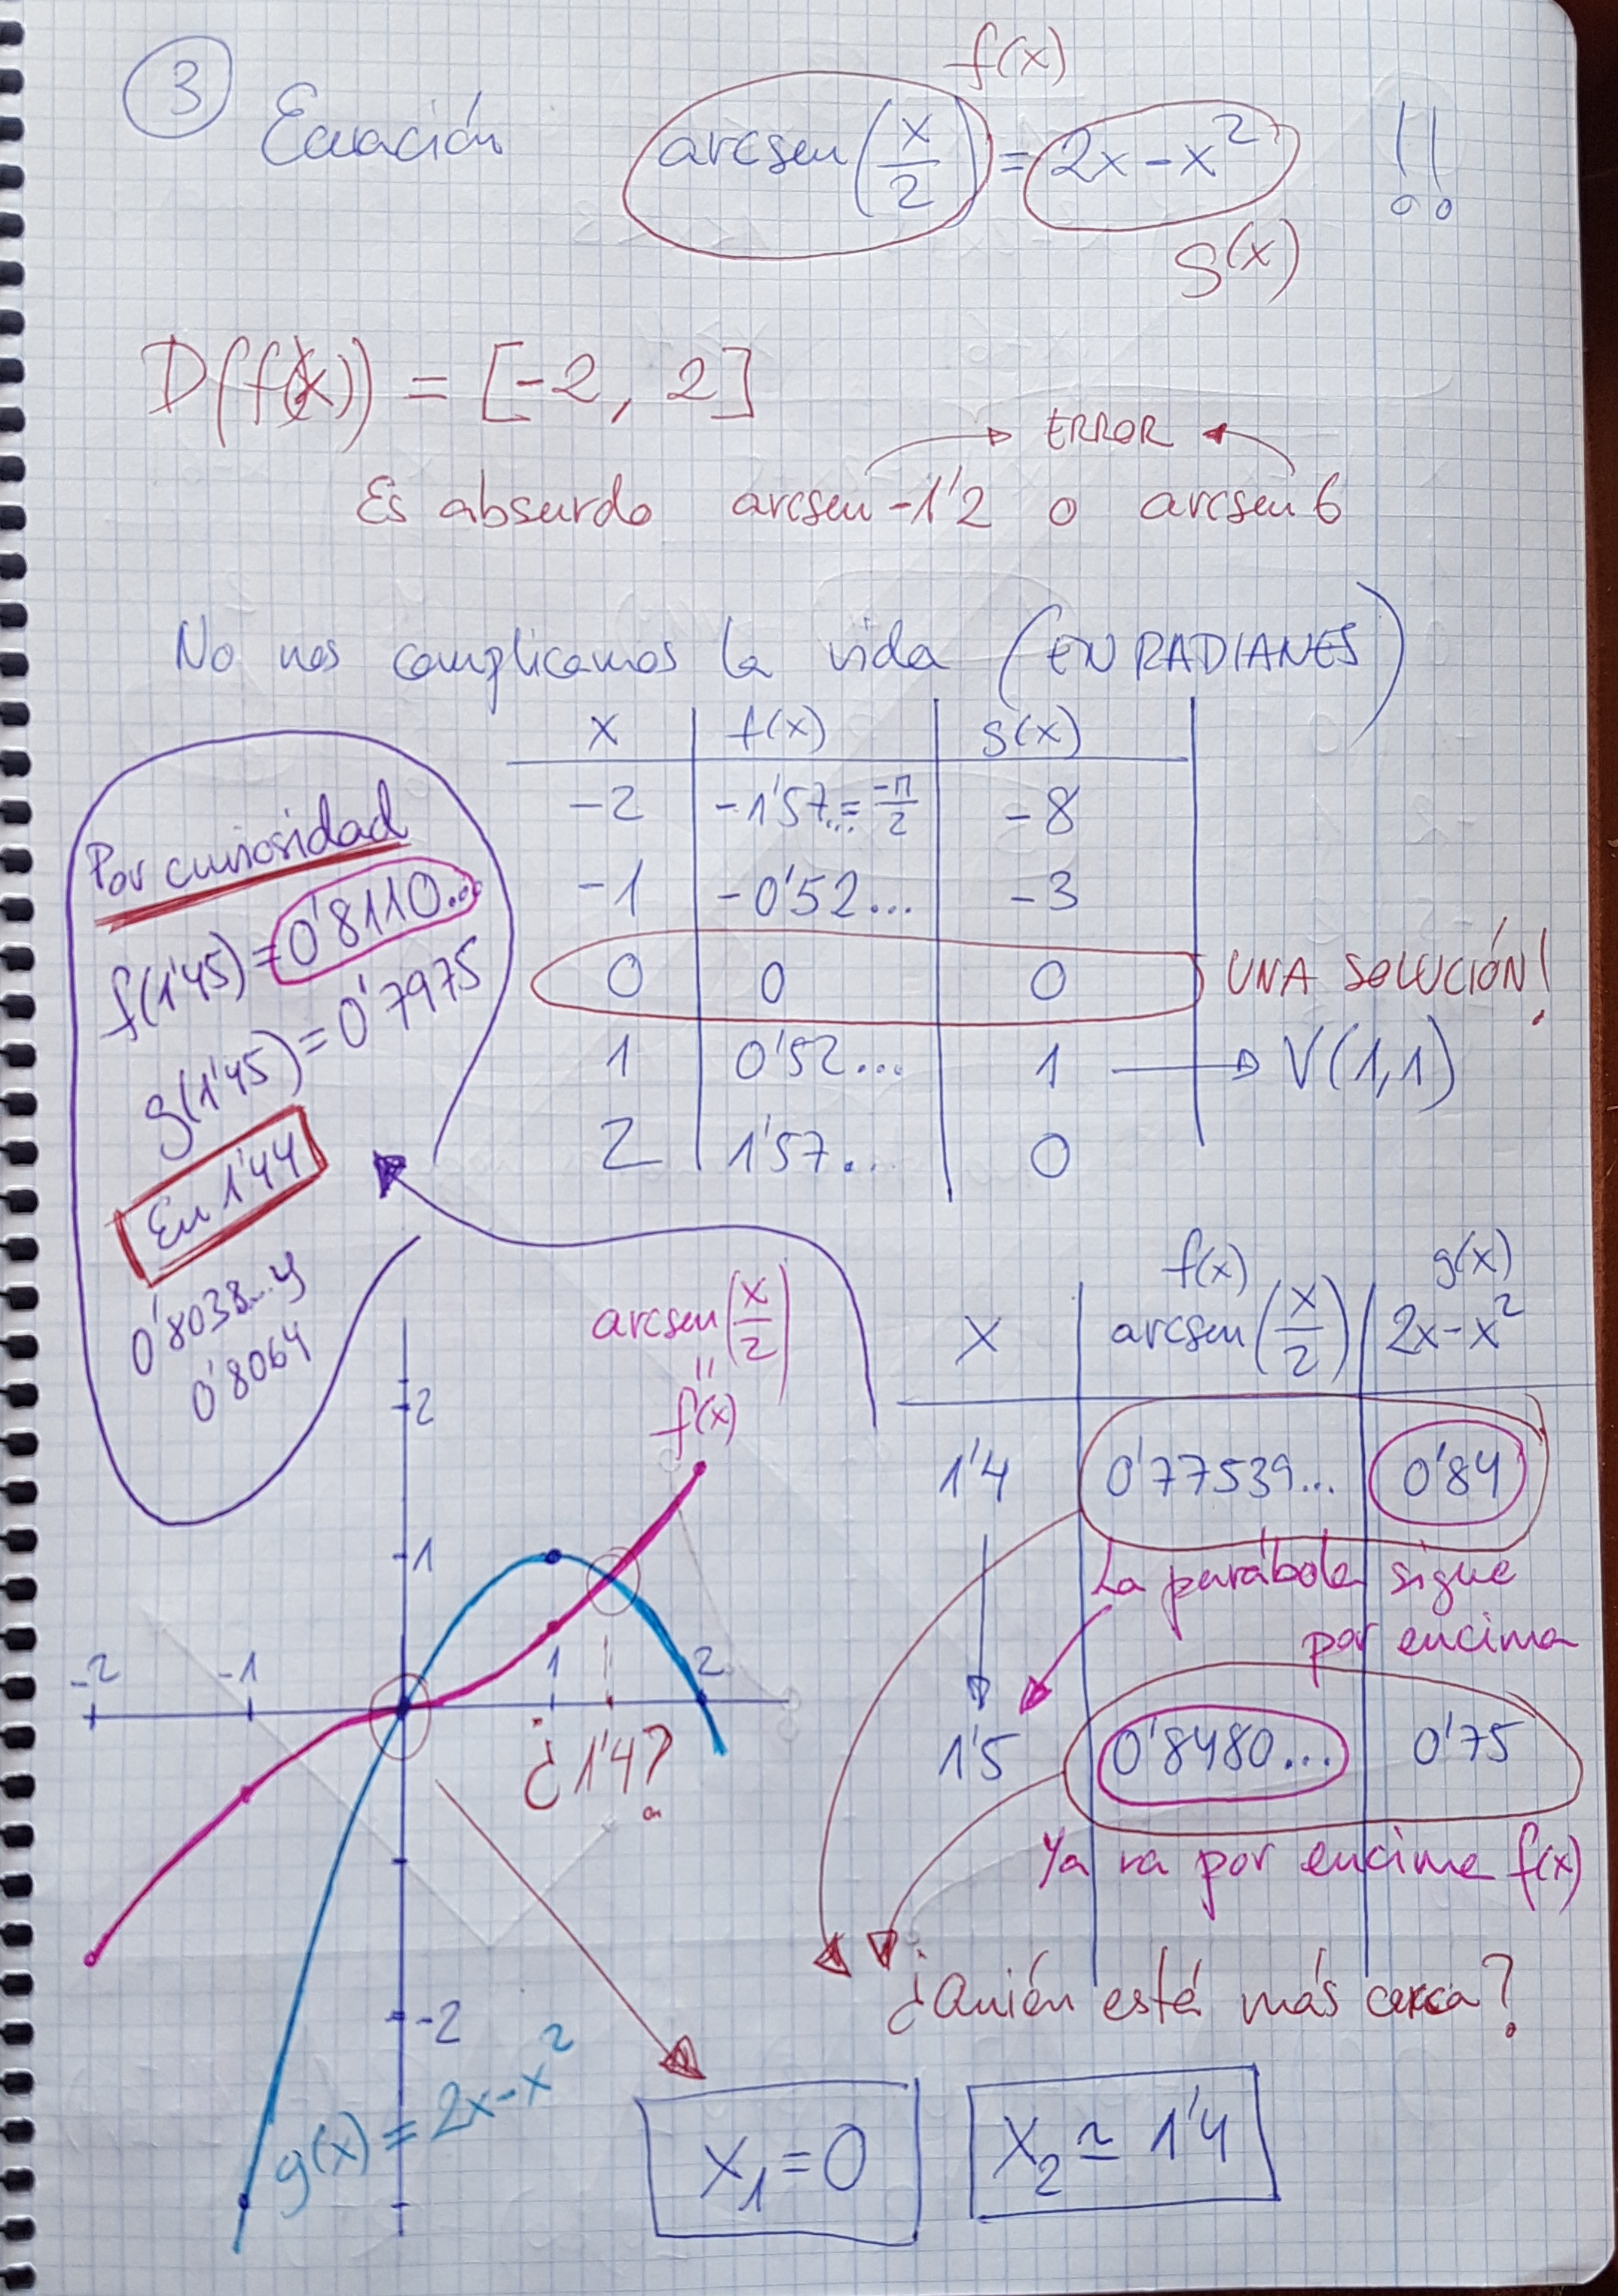 3 Ecuación arcsen(x/2) = 2x-x² !!
f(x)
g(x)
D(f(x)) = [-2, 2]
ERROR
Es absurdo arcsen -1'2 o arcsen 6
No nos complicamos la vida (EN RADIANES)
x f(x) g(x)
-2 -1'57...=-π/2 -8
-1 -0'52... -3
0 0 0 UNA SOLUCIÓN!
1 0'52... 1 → V(1,1)
2 1'57... 0
Por curiosidad
f(1'45)=0'8110...
g(1'45)=0'7975
En 1'44
0'8038...y
0'8064
arcsen(x/2)
"
f(x)
f(x) g(x)
x arcsen(x/2) 2x-x²
1'4 0'77539... 0'84
La parábola sigue
por encima
1'5 0'8480... 0'75
Ya va por encima f(x)
¿Quién está más cerca?
2
1
-2 -1 1 2
¿1'4?
-2
g(x)=2x-x²
x₁=0 x₂≃1'4